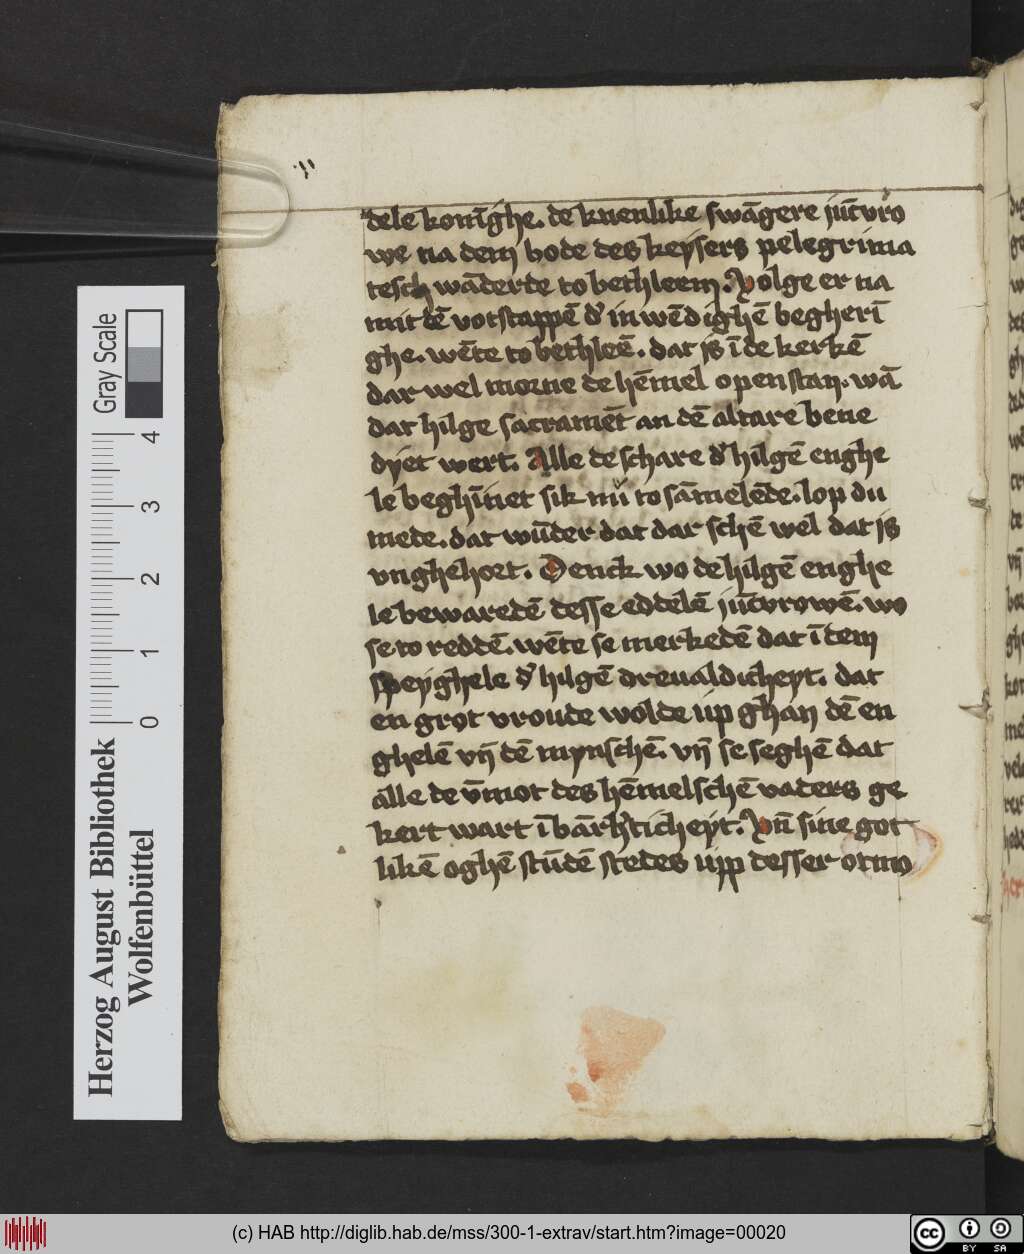 delē konīghe. de kuenlike swāgere jūcvro
we na dem bode des keysers pelegrima
tesch wāderde to bethleem. Volge er na
mit dē votstappē d' inwēdighē begherī
ghe. wēte to bethleē. dat is ī de kerkē
dar wel morne de hēmel open stan. wā
dat hilge sacramēt an dē altare bene
dyet wert. Alle de schare d' hilgē enghe
le beghīnet sik nū to sāmelēde. lop du
mede. dat wūder dat dar schē wel dat is
vnghehort. Denck wo de hilgē enghe
le bewaredē desse eddelē jūcvrowē. wo
se to reddē. wēte se merkedē dat ī dem
speyghele d' hilgē dreualdicheyt. dat
en grot vroude wolde up ghan dē en
ghelē vn̄ dē mynschē. vn̄ se seghē dat
alle de v̄mot des hēmelschē vaders ge
kert wart ī bārh'ticheyt. Vn̄ sine got
likē oghē stūdē stedes upp desser otmo
Gray Scale
0 1 2 3 4
Herzog August Bibliothek
Wolfenbüttel
(c) HAB http://diglib.hab.de/mss/300-1-extrav/start.htm?image=00020
cc BY SA